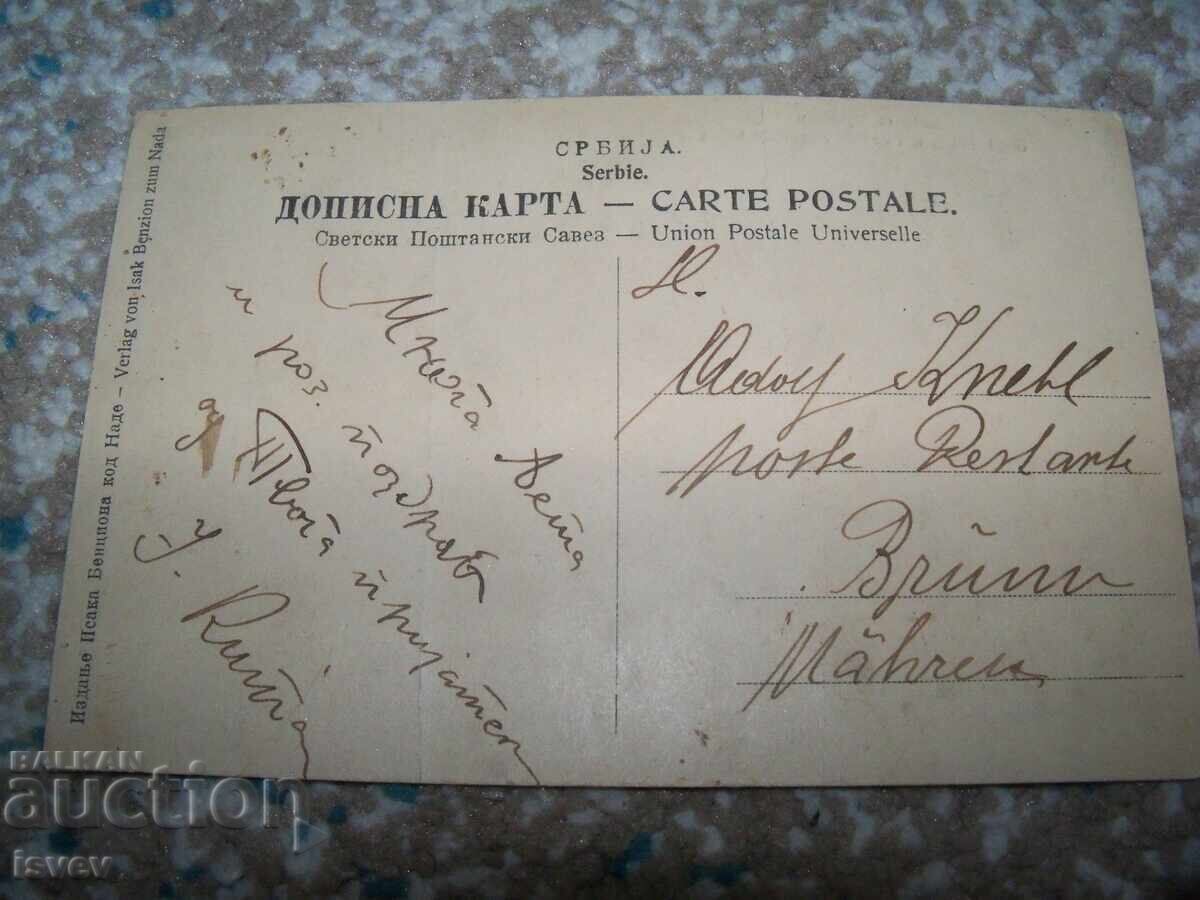 СРБИЈА.
Serbie.
ДОПИСНА КАРТА — CARTE POSTALE.
Светски Поштански Савез — Union Postale Universelle
Издање Исака Бенциона код Наде – Verlag von Isak Benzion zum Nada
Многа лета
и поздрав
од Твога пријатељ
H.
Adolf Knehl
poste Restante
Brünn
Mähren
BALKAN
auction
isvev